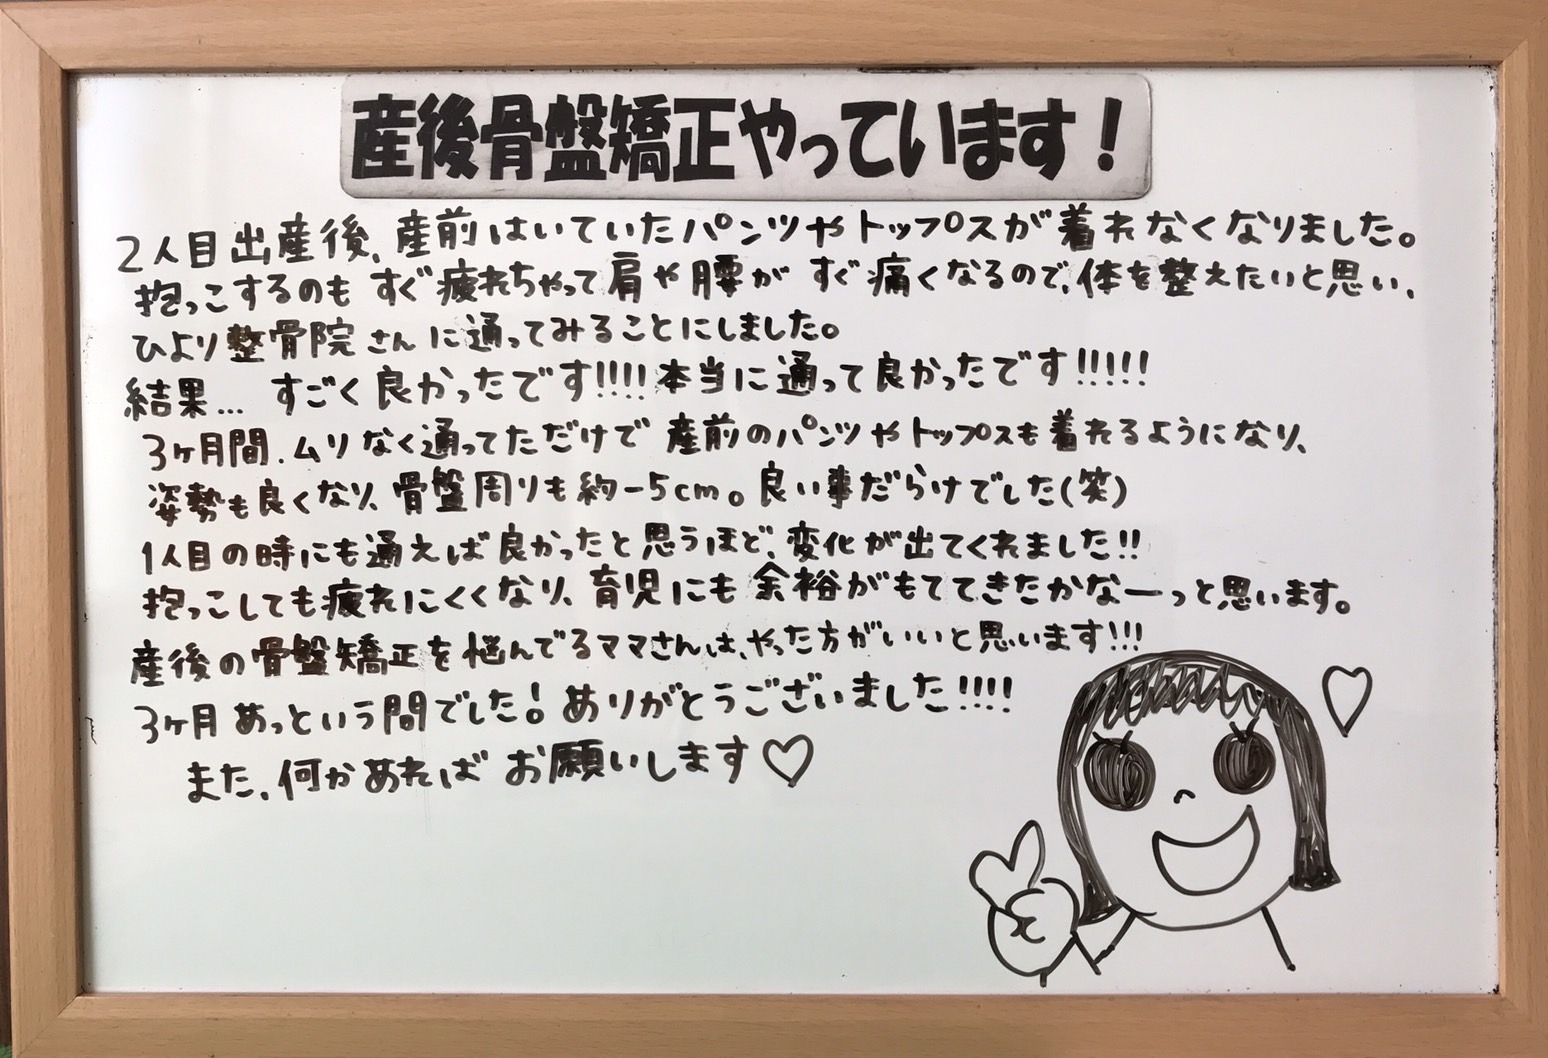 産後骨盤矯正やっています！
2人目出産後、産前はいていたパンツやトップスが着れなくなりました。
抱っこするのも すぐ疲れちゃって肩や腰が すぐ痛くなるので、体を整えたいと思い、
ひより整骨院さんに通ってみることにしました。
結果... すごく良かったです!!!!本当に通って良かったです!!!!!
3ヶ月間、ムリなく通ってただけで 産前のパンツやトップスも着れるようになり、
姿勢も良くなり、骨盤周りも約-5cm。良い事だらけでした(笑)
1人目の時にも通えば良かったと思うほど、変化が出てくれました!!
抱っこしても疲れにくくなり、育児にも余裕がもててきたかなーっと思います。
産後の骨盤矯正を悩んでるママさんは、やった方がいいと思います!!!
3ヶ月あっという間でした! ありがとうございました!!!!
また、何かあれば お願いします♡